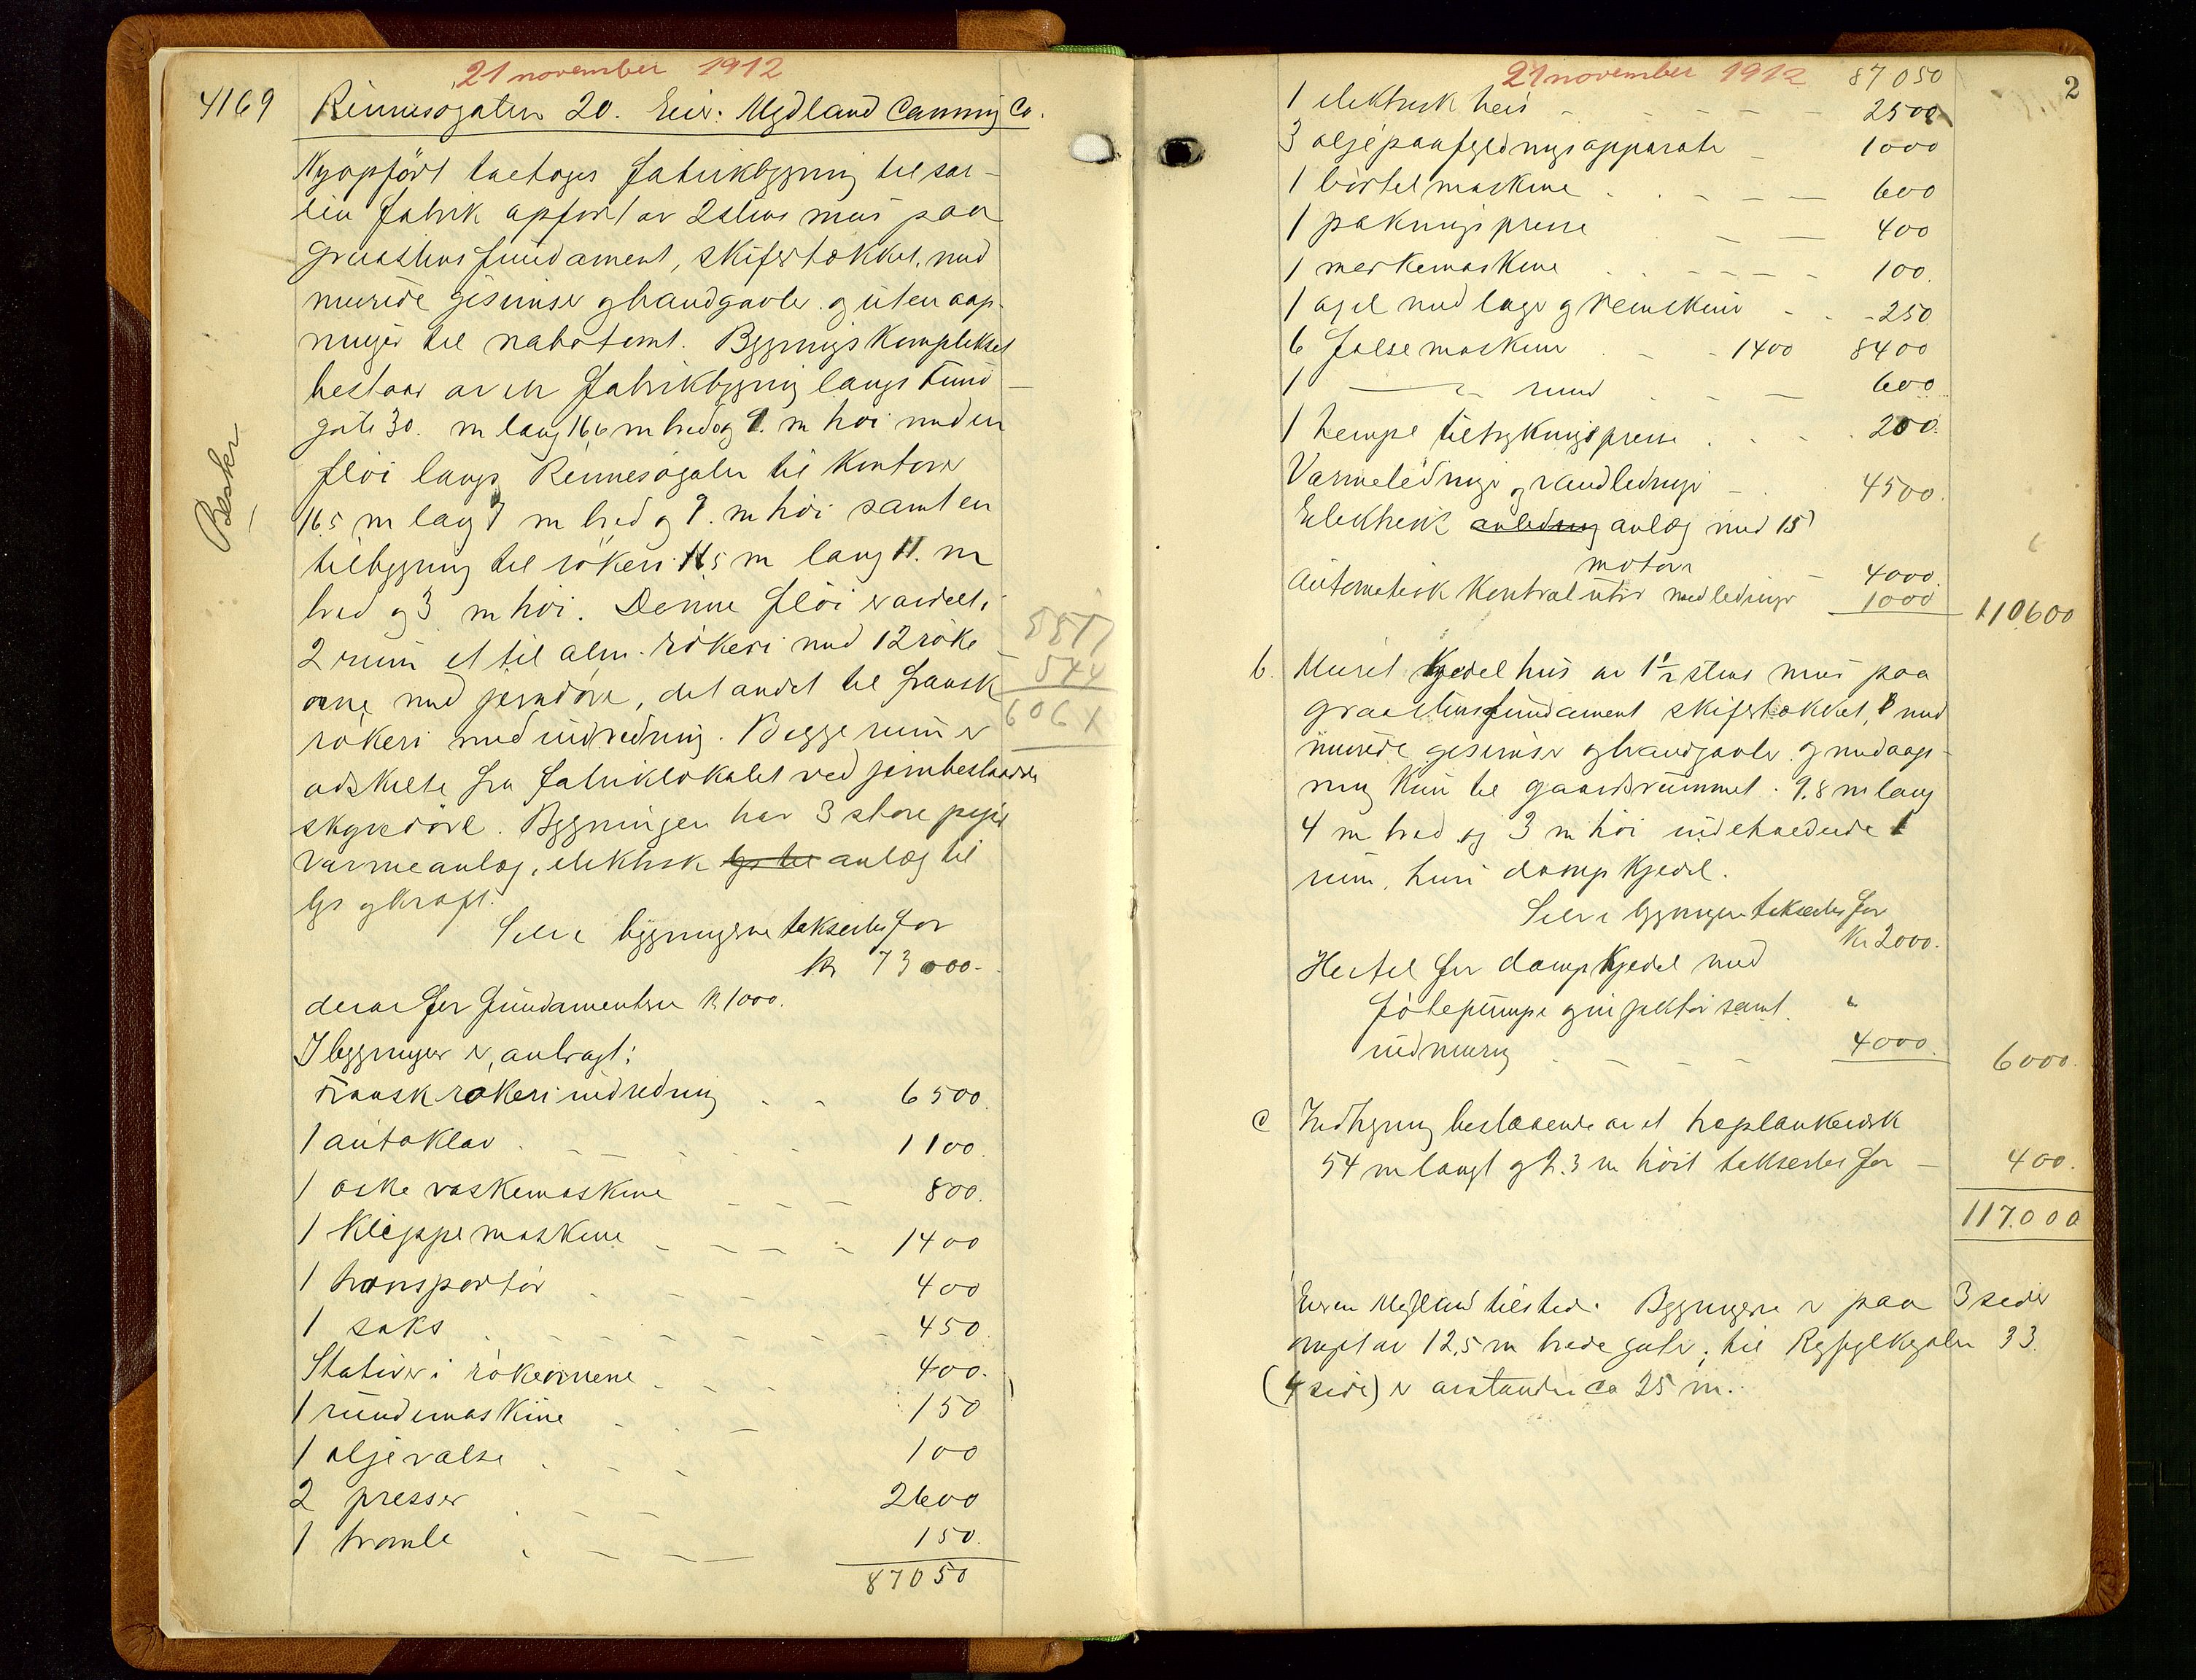 21 november 1912
4169 Rennesøgaten 20. Eier: Mydland Canning Co.
Nyopført toetages fabrikbygning til sar-
din fabrik opført av 2 stens mur paa
graastens fundament, skifertækket, med
murede gesimser og brandgavler og uten aap-
ninger til nabotomt. Bygningskomplekset
bestaar av en fabrikbygning langs Lund
gate 30. m lang 16,6 m bred og 9. m høi med en
fløi langs Rennesøgaten til kontorer
16.5 m lang 7 m bred og 9. m høi samt en
tilbygning til røkeri 11.5 m lang 11. m
bred og 3 m høi. Denne fløi er avdelt i
2 rum et til alm. røkeri med 12 røke
ovne med jerndøre, det andet til fransk
røkeri med indredning. Begge rum er
adskilte fra fabriklokalet ved jernbeslaatte
skyvedøre. Bygningen har 3 store piper
varmeanlæg, elektrisk lys til anlæg til
lys og kraft.
Selve bygningerne taksertes for
kr 73000.-
derav for fundamenterne kr 1000.
I bygningen er anbragt:
Fransk røkeri indredning 6500.
1 autoklav 1100.
1 æske vaskemaskine 800.
1 klippemaskine 1400
1 transportør 400
1 saks 450.
Stativer i røkeovnene 400.
1 rundemaskine 150
1 oljevalse 100
2 presser 2600
1 tromle 150.
87050
Beskr
5517
544
6061
21 november 1912 87050
2
1 elektrisk heis 2500
3 oljepaafyldningsapparater 1000
1 børtelmaskine 600
1 pakningspresse 400
1 merkemaskine 100.
1 axel med lager og remskiver 250
6 falsemaskiner 1400 8400
1 — " — rund 600
1 hempel tiltrykningspresse 200.
Varmeledninger og vandledninger 4500.
Elektrisk anledning anlæg med 15
motorer 4000.
Automatisk kontrolur med ledninger 1000 110600
b. Muret kjedelhus av 1½ stens mur paa
graastensfundament skifertækket, med
murede gesimser og brandgavler og med aap-
ning kun til gaardsrummet. 9.8 m lang
4 m bred og 3 m høi indeholdende 1
rum, hvori dampkjedel.
Selve bygningen taksertes for
Kr 2000.
Heftel for dampkjedel med
fødepumpe og injektør samt "
indmuring 4000. 6000.
c Indhegning bestaaende av et træplankeværk
54 m langt og 2.3 m høit taksertes for 400.
117.000
Eieren Mydland tilstede. Bygningerne er paa 3 sider
omgit av 12,5 m brede gater; til Ryfylkegaten 33.
(4 side) er avstanden ca 25 m.